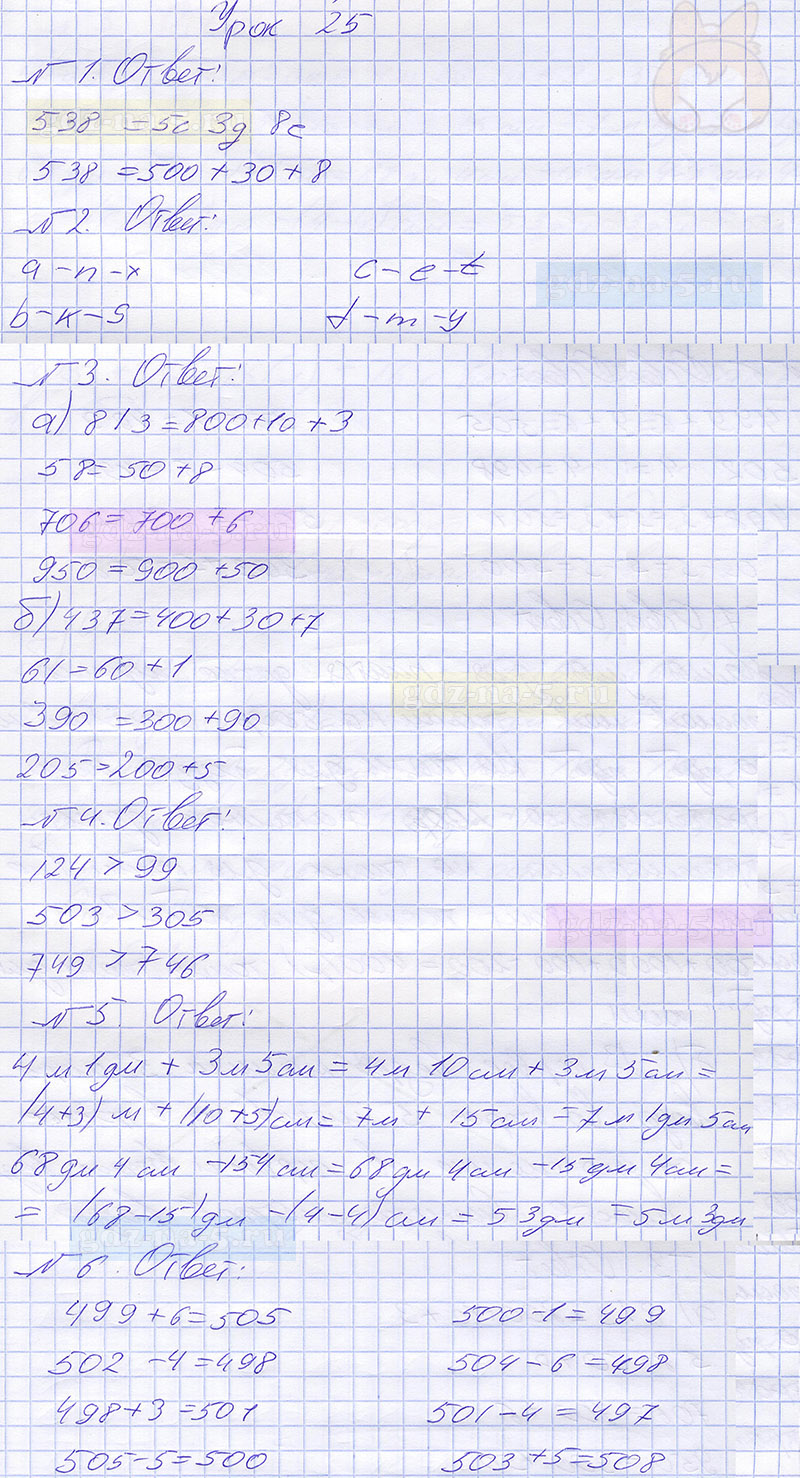 Урок 25
№ 1. Ответ:
538 = 5с 3д 8е
538 = 500 + 30 + 8
№ 2. Ответ:
a - n - x c - e - t
b - k - s d - m - y
gdz-na-5.ru
№ 3. Ответ:
а) 813 = 800 + 10 + 3
58 = 50 + 8
706 = 700 + 6
950 = 900 + 50
б) 437 = 400 + 30 + 7
61 = 60 + 1
gdz-na-5.ru
390 = 300 + 90
205 = 200 + 5
№ 4. Ответ:
124 > 99
503 > 305
gdz-na-5.ru
749 > 746
№ 5. Ответ:
4 м 1 дм + 3 м 5 см = 4 м 10 см + 3 м 5 см =
(4+3) м + (10+5) см = 7 м + 15 см = 7 м 1 дм 5 см
68 дм 4 см - 154 см = 68 дм 4 см - 15 дм 4 см =
= (68-15) дм - (4-4) см = 53 дм = 5 м 3 дм
№ 6. Ответ:
499 + 6 = 505 500 - 1 = 499
502 - 4 = 498 504 - 6 = 498
498 + 3 = 501 501 - 4 = 497
505 - 5 = 500 503 + 5 = 508